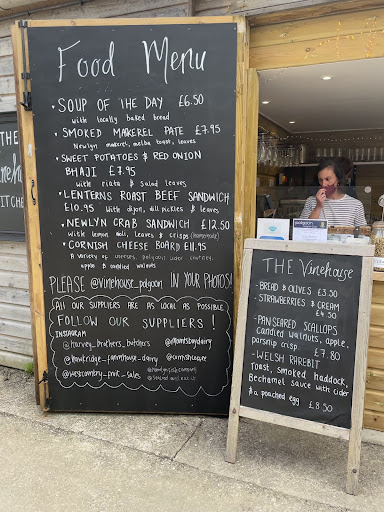 Food Menu
SOUP OF THE DAY £6.50
with locally baked bread
SMOKED MAKEREL PATE £7.95
Newlyn makerel, melba toast, leaves
SWEET POTATOES & RED ONION
BHAJI £7.95
with riata & salad leaves
LENTERNS ROAST BEEF SANDWICH
£10.95 with dijon, dill pickles & leaves
NEWLYN CRAB SANDWICH £12.50
with lemon aoli, leaves & crisps (homemade)
CORNISH CHEESE BOARD £11.95
A variety of cheeses, polgoon cider chutney,
apple & candied walnuts
PLEASE @vinehouse_polgoon IN YOUR PHOTOS!
All OUR SUPPLIERS ARE AS LOCAL AS POSSIBLE
FOLLOW OUR SUPPLIERS !
INSTAGRAM
@harvey_brothers_butchers
@mountsbaydairy
@trewithen_dairy
@westcountry_fruit_sales
THE
Vinehouse
KITCHEN
polgoon
THE Vinehouse
- BREAD & OLIVES £3.50
- STRAWBERRIES & CREAM
£4.50
- PAN SEARED SCALLOPS
candied walnuts, apple,
parsnip crisp
£7.80
- WELSH RAREBIT
Toast, smoked haddock,
Bechamel sauce with cider
& a poached egg
£8.50